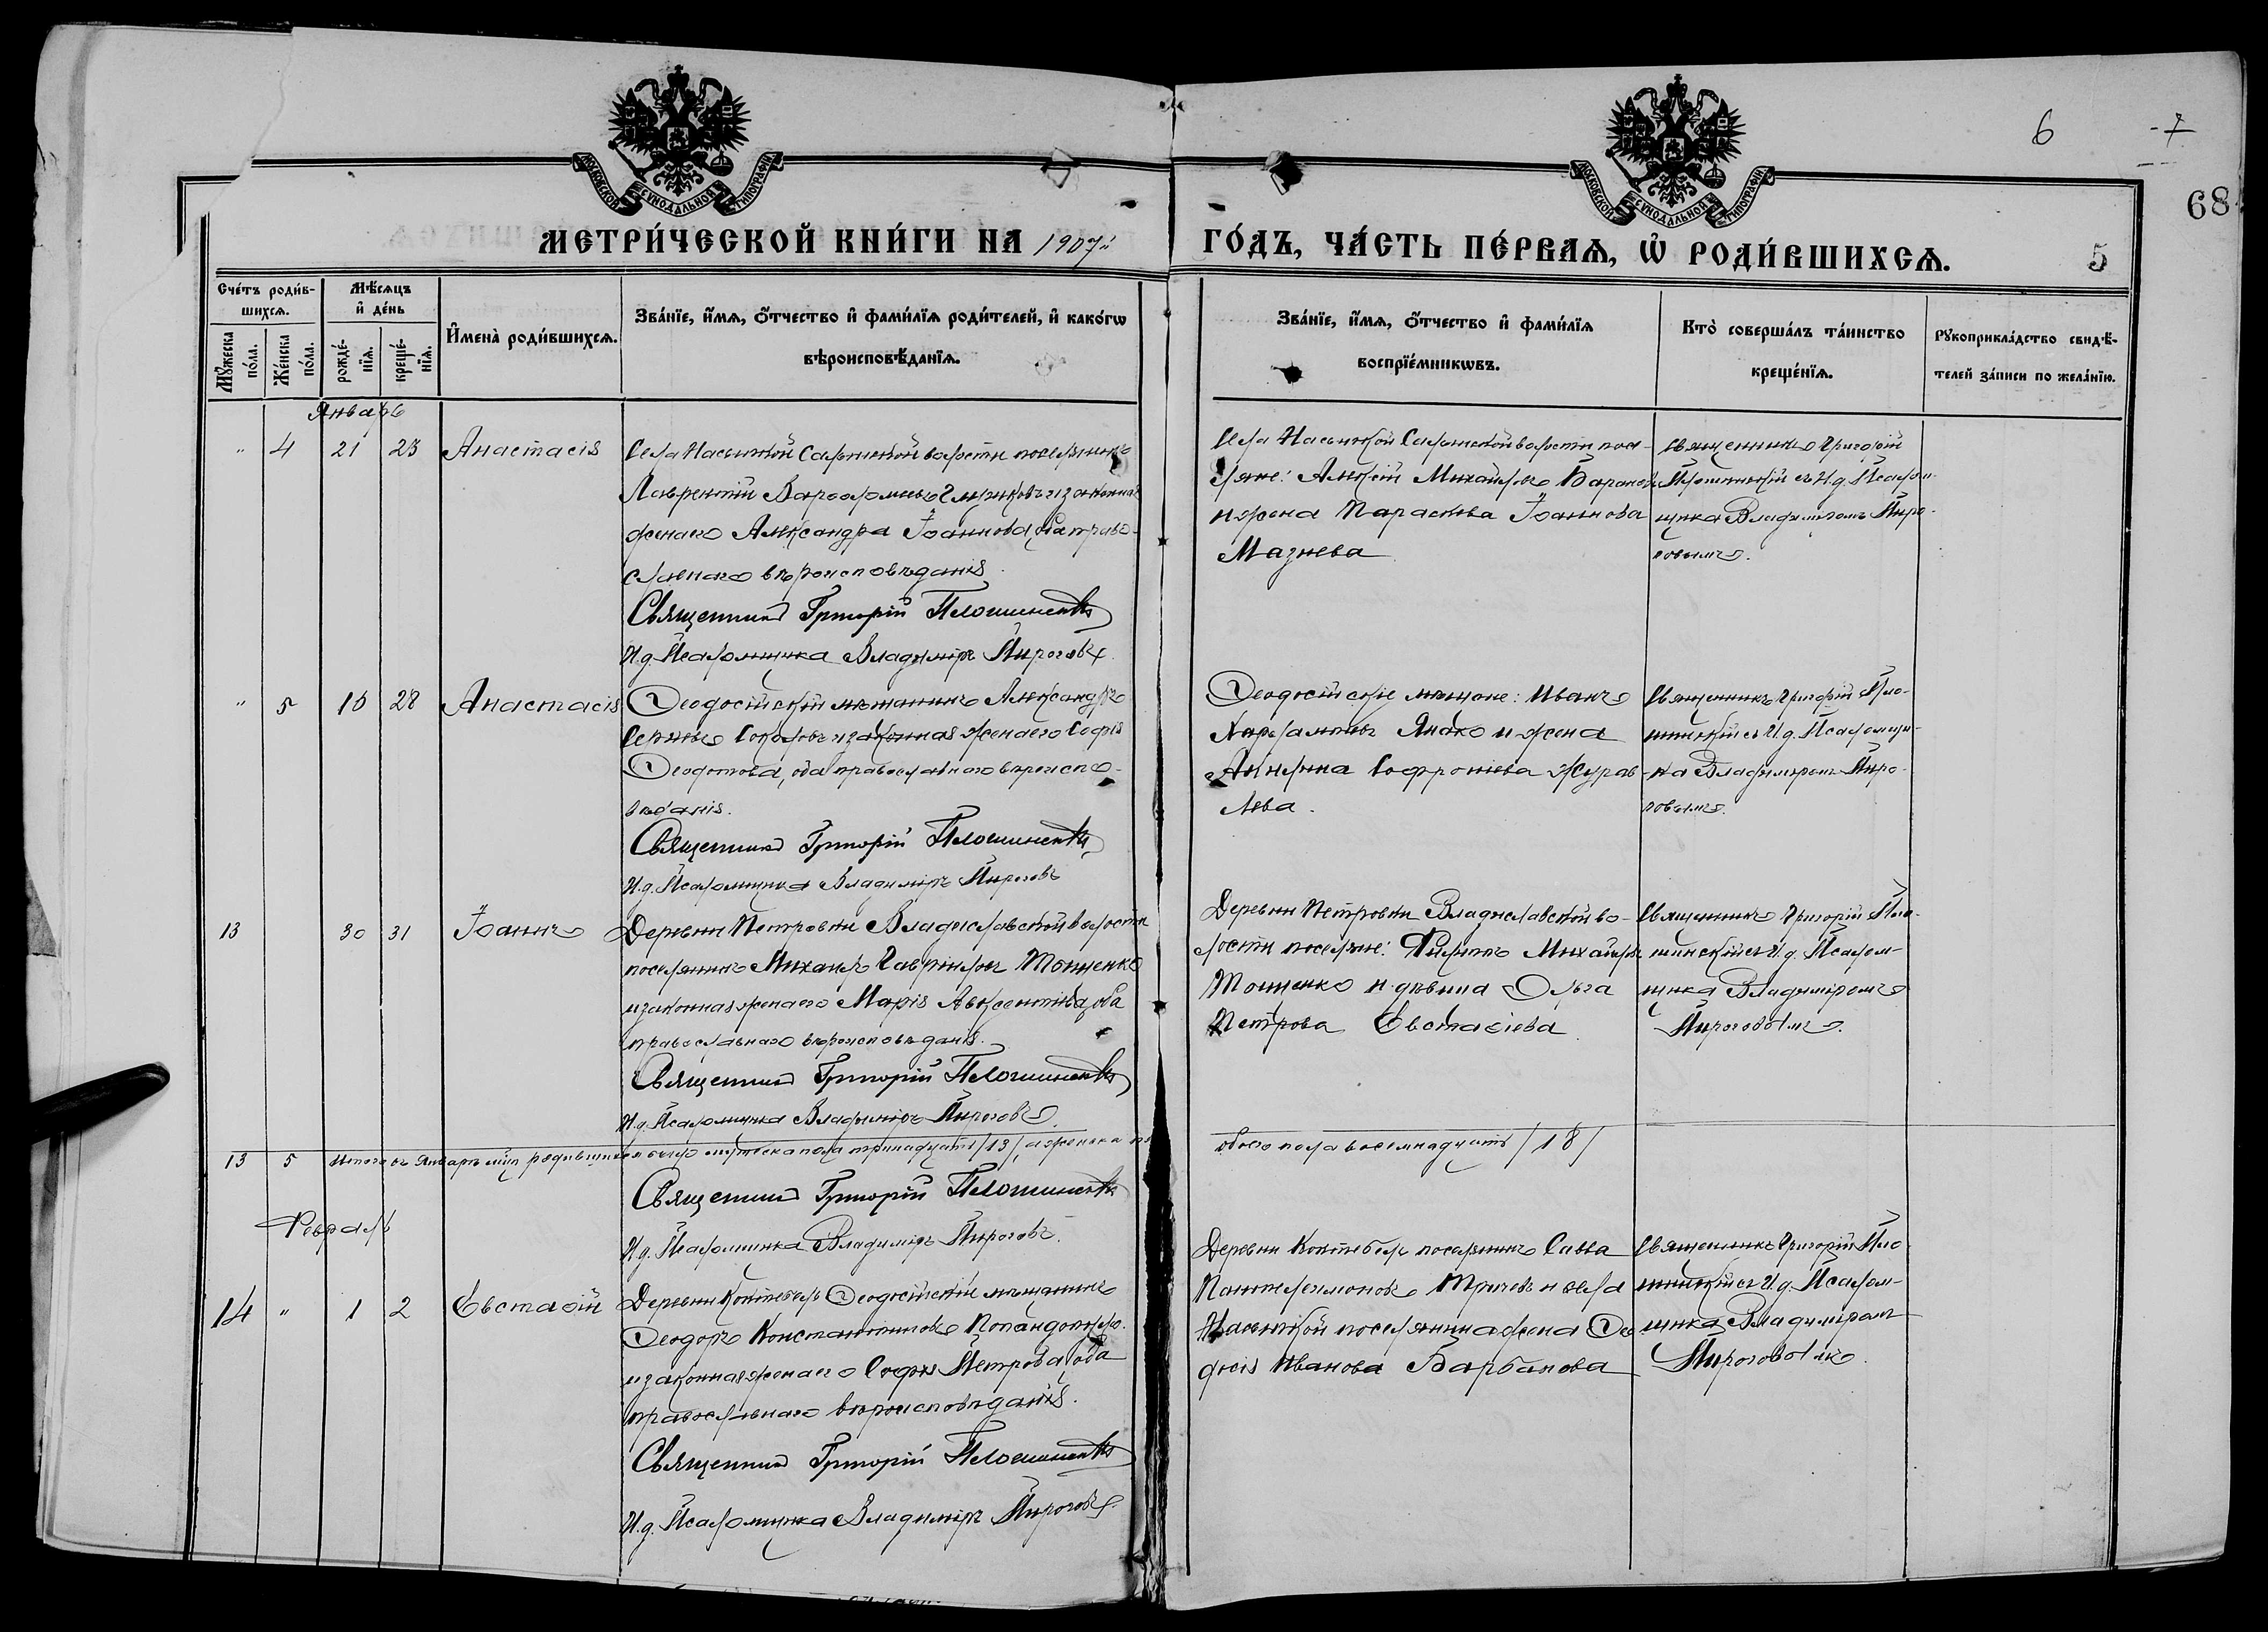 6 -7
68
МОСКОВСКОЙ СѴНОДАЛЬНОЙ ТИПОГРАФІИ
МОСКОВСКОЙ СѴНОДАЛЬНОЙ ТИПОГРАФІИ
МЕТРИ́ЧЕСКОЙ КНИ́ГИ НА 1907й ГО́ДЪ, ЧА́СТЬ ПЕ́РВАѦ, Ѡ҆ РОДИ́ВШИХСѦ.
5
Сче́тъ роди́в-
шихсѧ.
Мѣ́сѧцъ
и҆ де́нь
Мꙋ́жеска по́ла.
Же́нска по́ла.
рожде́-
нїѧ.
креще́-
нїѧ.
И҆мена̀ роди́вшихсѧ.
Зва́нїе, и҆́мѧ, ѻ҆́тчество и҆ фами́лїѧ роди́телей, и҆ како́гѡ
вѣроисповѣ́данїѧ.
Зва́нїе, и҆́мѧ, ѻ҆́тчество и҆ фами́лїѧ
воспрїе́мникѡвъ.
Кто̀ соверша́лъ та́инство
креще́нїѧ.
Рꙋкоприкла́дство свидѣ́-
телей за́писи по жела́нїю.
Январь
" 4 21 23 Анастасія
Села Насыпкой Салынской волости поселянинъ
Лаврентій Варѳоломеевъ и законная
жена его Александра Іоаннова, оба право-
славнаго вѣроисповѣданія.
Священникъ Григорій Плошинскій
И.д. Псаломщика Владиміръ Пироговъ.
Села Насыпкой Салынской волости посе-
ляне: Алексѣй Михайловъ
и жена Параскева Іоаннова
Мазнева
Священникъ Григорій
Плошинскій съ И.д. Псалом-
щика Владиміромъ Пиро-
говымъ.
" 5 28 Анастасія
Ѳеодосійскій мѣщанинъ Александръ
Соколовъ и законная жена его Софія
Ѳеодотова, оба православнаго вѣроиспо-
вѣданія.
Священникъ Григорій Плошинскій
И.д. Псаломщика Владиміръ Пироговъ
Ѳеодосійскіе мѣщане: Иванъ
Харлампіевъ и жена
Софроніева Журав-
лева.
Священникъ Григорій Пло-
шинскій съ И.д. Псаломщи-
ка Владиміромъ Пиро-
говымъ.
13 30 31 Іоаннъ
Деревни Петровки Владиславской волости
поселянинъ Михаилъ Гавріиловъ Тощенко
и законная жена его Марія Авксентіева, оба
православнаго вѣроисповѣданія.
Священникъ Григорій Плошинскій
И.д. Псаломщика Владиміръ Пироговъ.
Деревни Петровки Владиславской во-
лости поселяне: Филиппъ Михайловъ
Тощенко и дѣвица Ольга
Петрова Евстаѳіева.
Священникъ Григорій Пло-
шинскій съ И.д. Псалом-
щика Владиміромъ
Пироговымъ.
13 5 Итого въ Январѣ мѣц родившихся было мужеска пола тринадцать /13/, а женска
обоего пола восемнадцать /18/
Священникъ Григорій Плошинскій
И.д. Псаломщика Владиміръ Пироговъ.
Февраль
14 " 1 2 Евстаѳій
Деревни Коктебель Ѳеодосійскій мѣщанинъ
Ѳеодоръ Константиновъ Попандопуло
и законная жена его Софія Петрова, оба
православнаго вѣроисповѣданія.
Священникъ Григорій Плошинскій
И.д. Псаломщика Владиміръ Пироговъ.
Деревни Коктебель поселянинъ Савва
Пантелеимоновъ и села
Насыпкой поселянина жена Ѳео-
досія Иванова Барбанова
Священникъ Григорій Пло-
шинскій съ И.д. Псалом-
щика Владиміромъ
Пироговымъ.